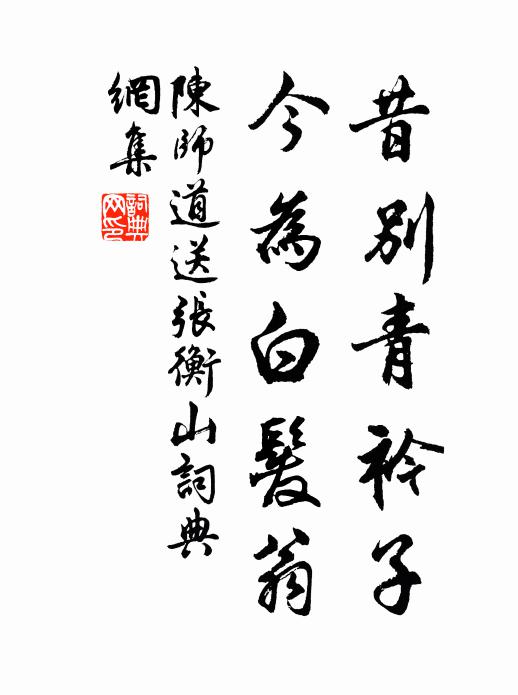 昔別青衿子
今為白髮翁
陳師道送張衡山詞典
網集
詞典
网印